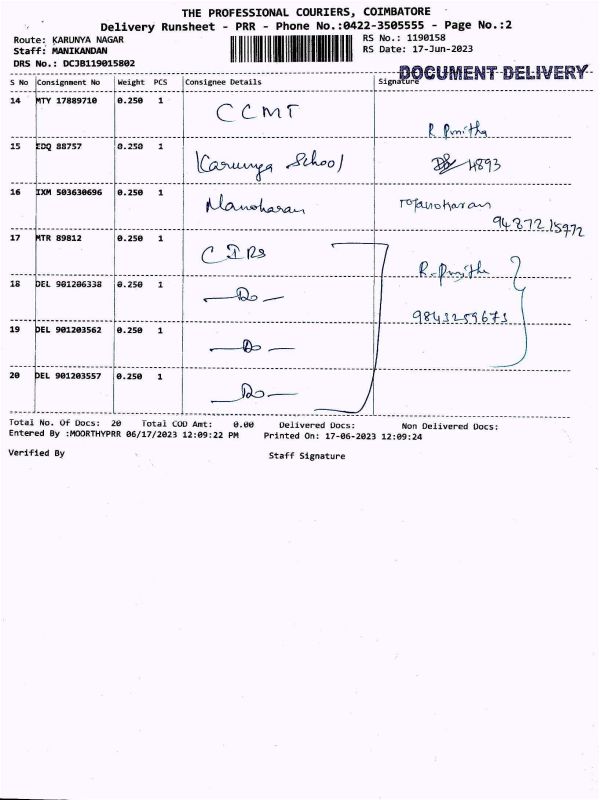 THE PROFESSIONAL COURIERS, COIMBATORE
Delivery Runsheet - PRR - Phone No.:0422-3505555 - Page No.:2
Route: KARUNYA NAGAR RS No.: 1190158
Staff: MANIKANDAN RS Date: 17-Jun-2023
DRS No.: DCJB119015802
DOCUMENT DELIVERY
S No Consignment No Weight PCS Consignee Details Signature
14 MTY 17889710 0.250 1 CCMT R. Punitha
15 EDQ 88757 0.250 1 Karunya School 4893
16 IXM 503630696 0.250 1 Manoharan Manoharan
9487215972
17 MTR 89812 0.250 1 CIRS R. Punitha
18 DEL 901206338 0.250 1 —Do— 9843259673
19 DEL 901203562 0.250 1 —Do—
20 DEL 901203557 0.250 1 —Do—
Total No. Of Docs: 20 Total COD Amt: 0.00 Delivered Docs: Non Delivered Docs:
Entered By :MOORTHYPRR 06/17/2023 12:09:22 PM Printed On: 17-06-2023 12:09:24
Verified By Staff Signature